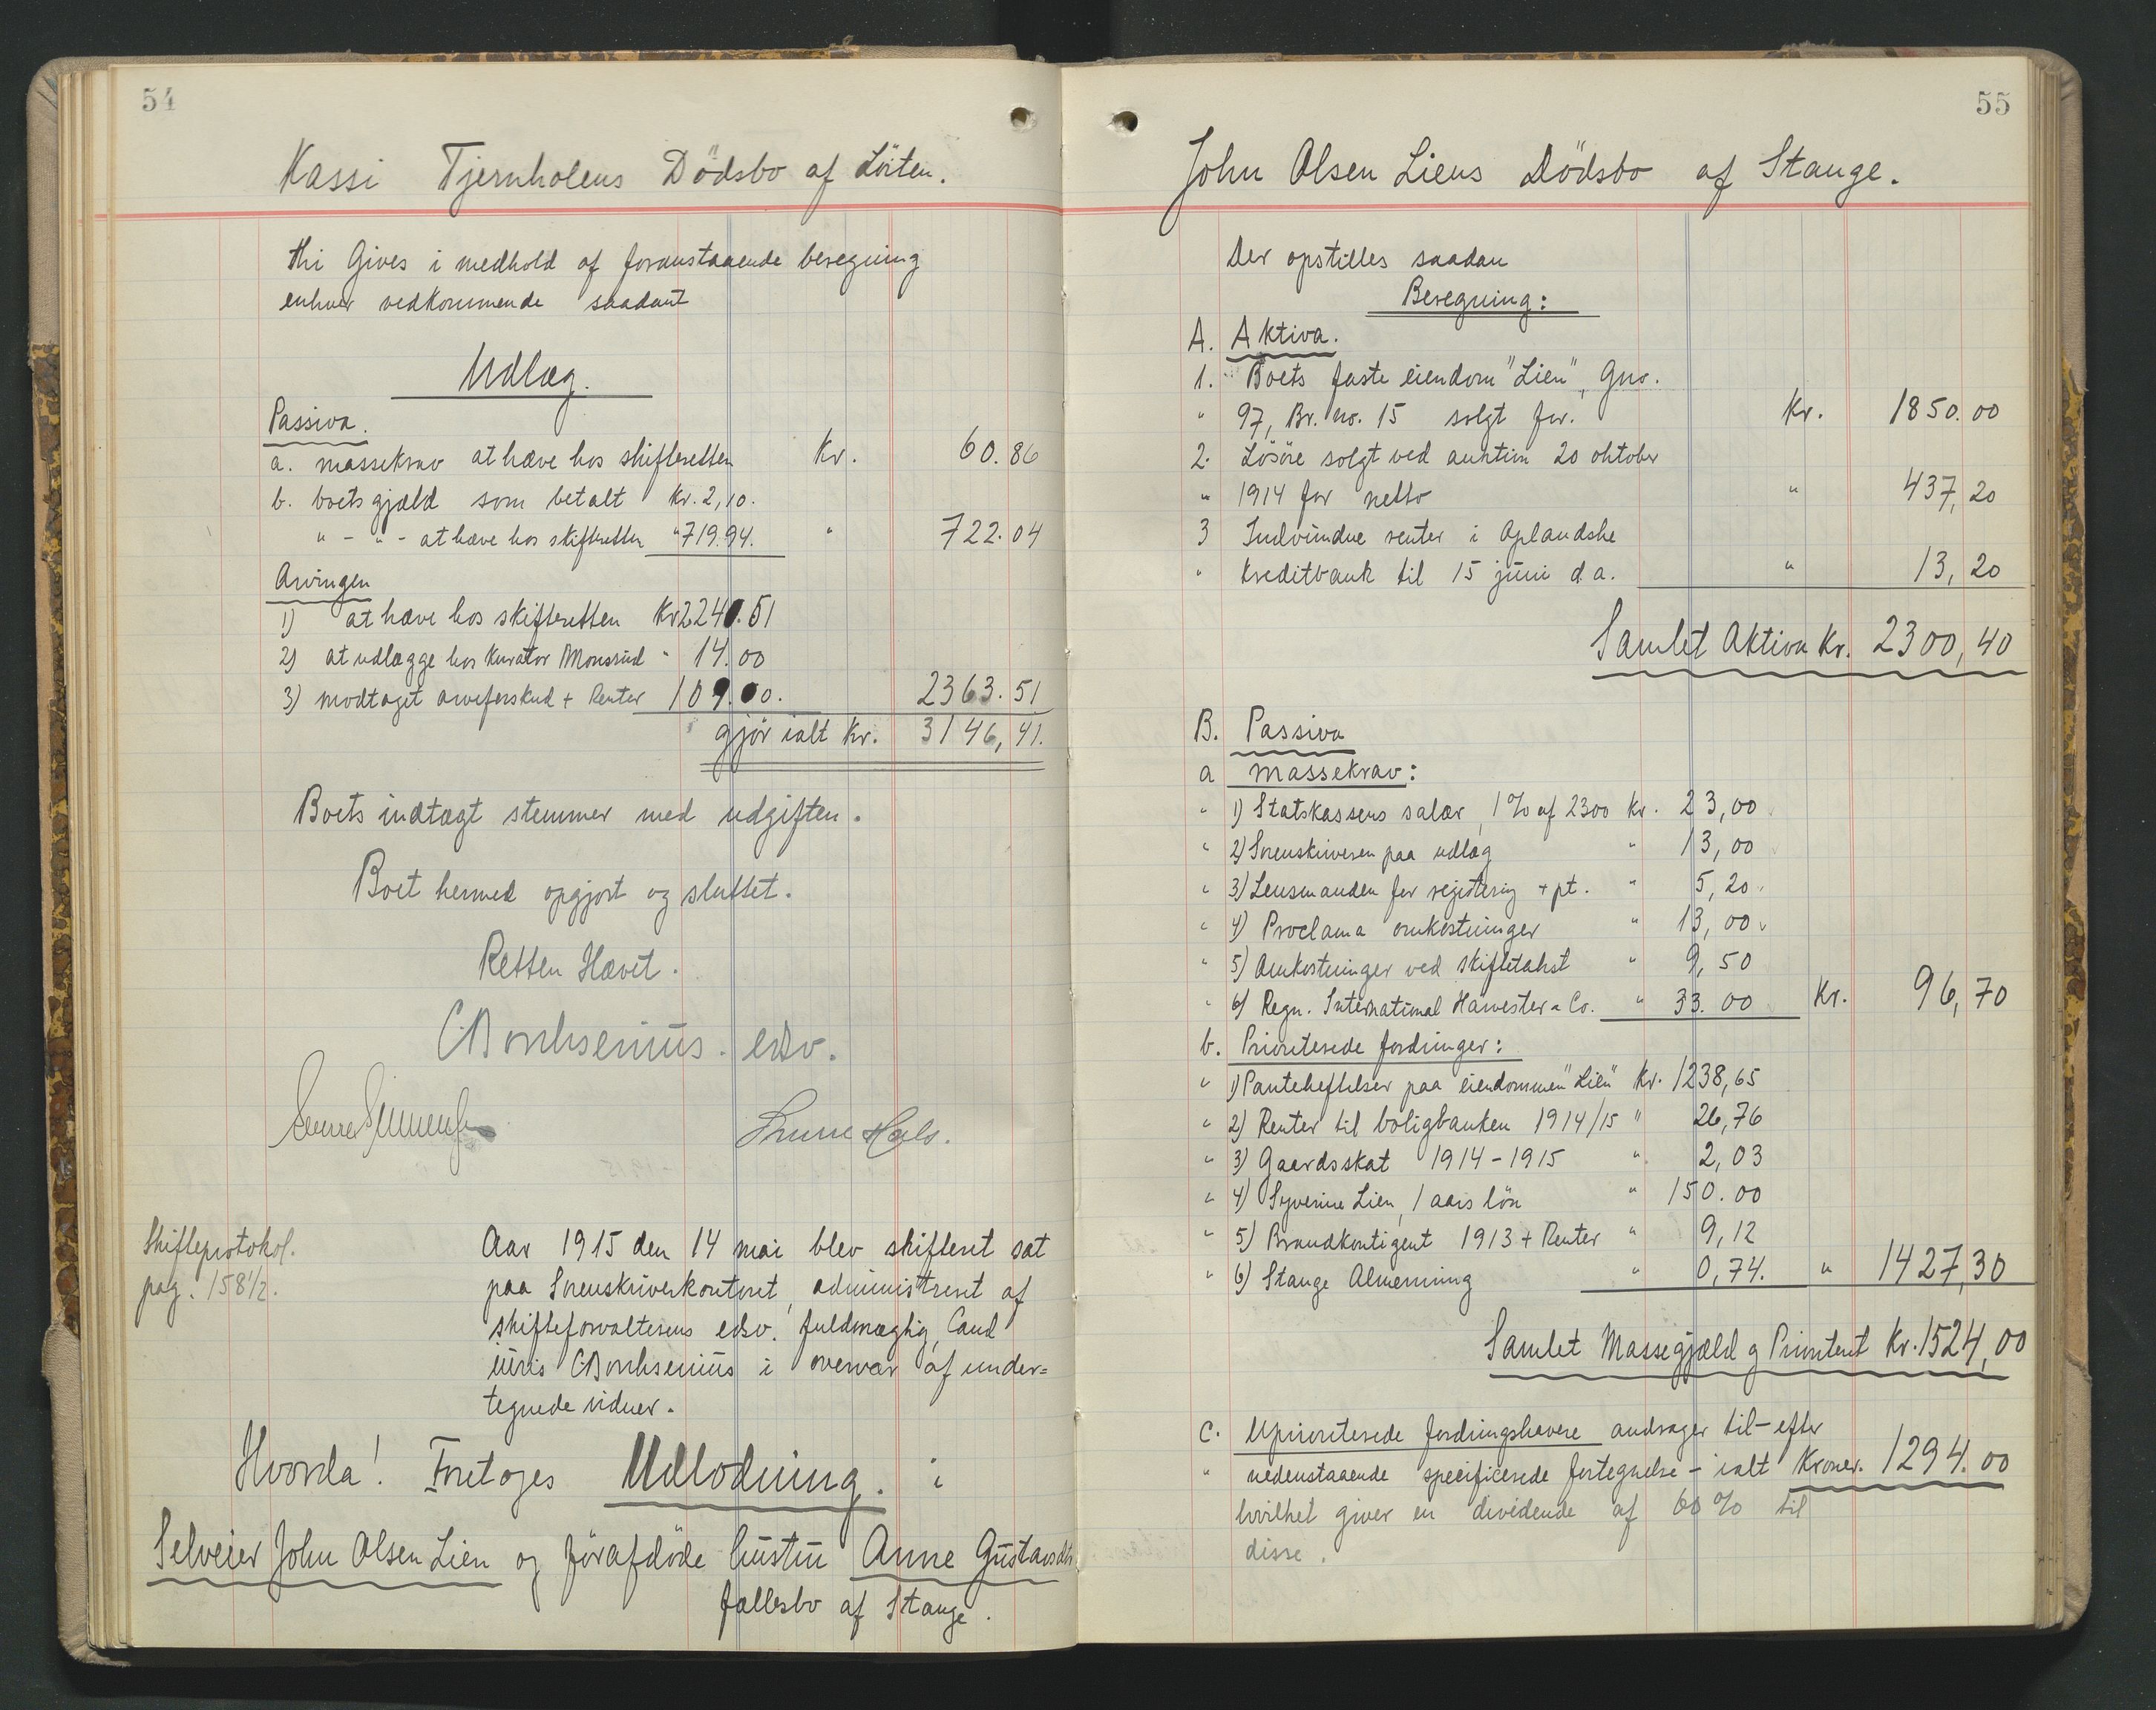 54
Kassi Tjernholens Dödsbo af Löiten.
thi Gives i medhold af foranstaaende beregning
enhver vedkommende saadant
Udlæg.
Passiva.
a. massekrav at hæve hos skifteretten Kr. 60.86
b. boets gjæld som betalt Kr. 2,10.
" - " - at hæve hos skifteretten " 719.94. " 722.04
Arvingen
1) at hæve hos skifteretten Kr 2240.51
2) at udlægge hos Kurator Monsrud " 14.00
3) modtaget arveforskud + Renter 109.00. 2363.51
gjör ialt Kr. 3146,41.
Boets indtægt stemmer med udgiften.
Boet hermed opgjort og sluttet.
Retten Hævet.
C Borchsenius. edsv.
Skifteprotokol.
pag. 158 1/2.
Aar 1915 den 14 mai blev skifteret sat
paa Sorenskriverkontoret, administreret af
skifteforvalterens edsv. fuldmægtig, Cand
iuris C Borchsenius i overvær af under=
tegnede vidner.
Hvorda! Foretoges Udlodning. i
Selveier John Olsen Lien og förafdöde hustru Anne Gustavsdtr
fællesbo af Stange.
55
John Olsen Liens Dödsbo af Stange.
Der opstilles saadan
Beregning:
A. Aktiva.
1. Boets faste eiendom "Lien", Gno.
" 97, Br. no. 15 solgt for. Kr. 1850.00
2. Lösöre solgt ved auktion 20 oktober
" 1914 for netto " 437,20
3 Indvundne renter i Oplandske
" Kreditbank til 15 juni d.a. " 13,20
Samlet Aktiva Kr. 2300,40
B. Passiva
a massekrav:
" 1) Statskassens salær, 1% af 2300 Kr. 23,00
" 2) Sorenskriveren paa udlæg " 13,00
" 3) Lensmanden for registering + pt. " 5,20
" 4) Proclama omkostninger " 13,00
" 5) Omkostninger ved skiftetakst " 9,50
" 6) Regn. International Harvester & Co. " 33.00 Kr. 96,70
b. Prioriterede fordringer:
" 1) Panteheftelser paa eiendommen "Lien" Kr. 1238,65
" 2) Renter til boligbanken 1914/15 " 26,76
" 3) Gaardsskat 1914-1915 " 2,03
" 4) Syverine Lien, 1 aars lön " 150.00
" 5) Brandkontigent 1913 + Renter " 9,12
" 6) Stange Almenning " 0,74. " 1427,30
Samlet Massegjæld og Prioriteret Kr. 1524,00
C. Uprioriterede fordringshavere andrager til - efter
" nedenstaaende specificerede fortegnelse - ialt Kroner. 1294.00
hvilket giver en dividende af 60% til
disse.